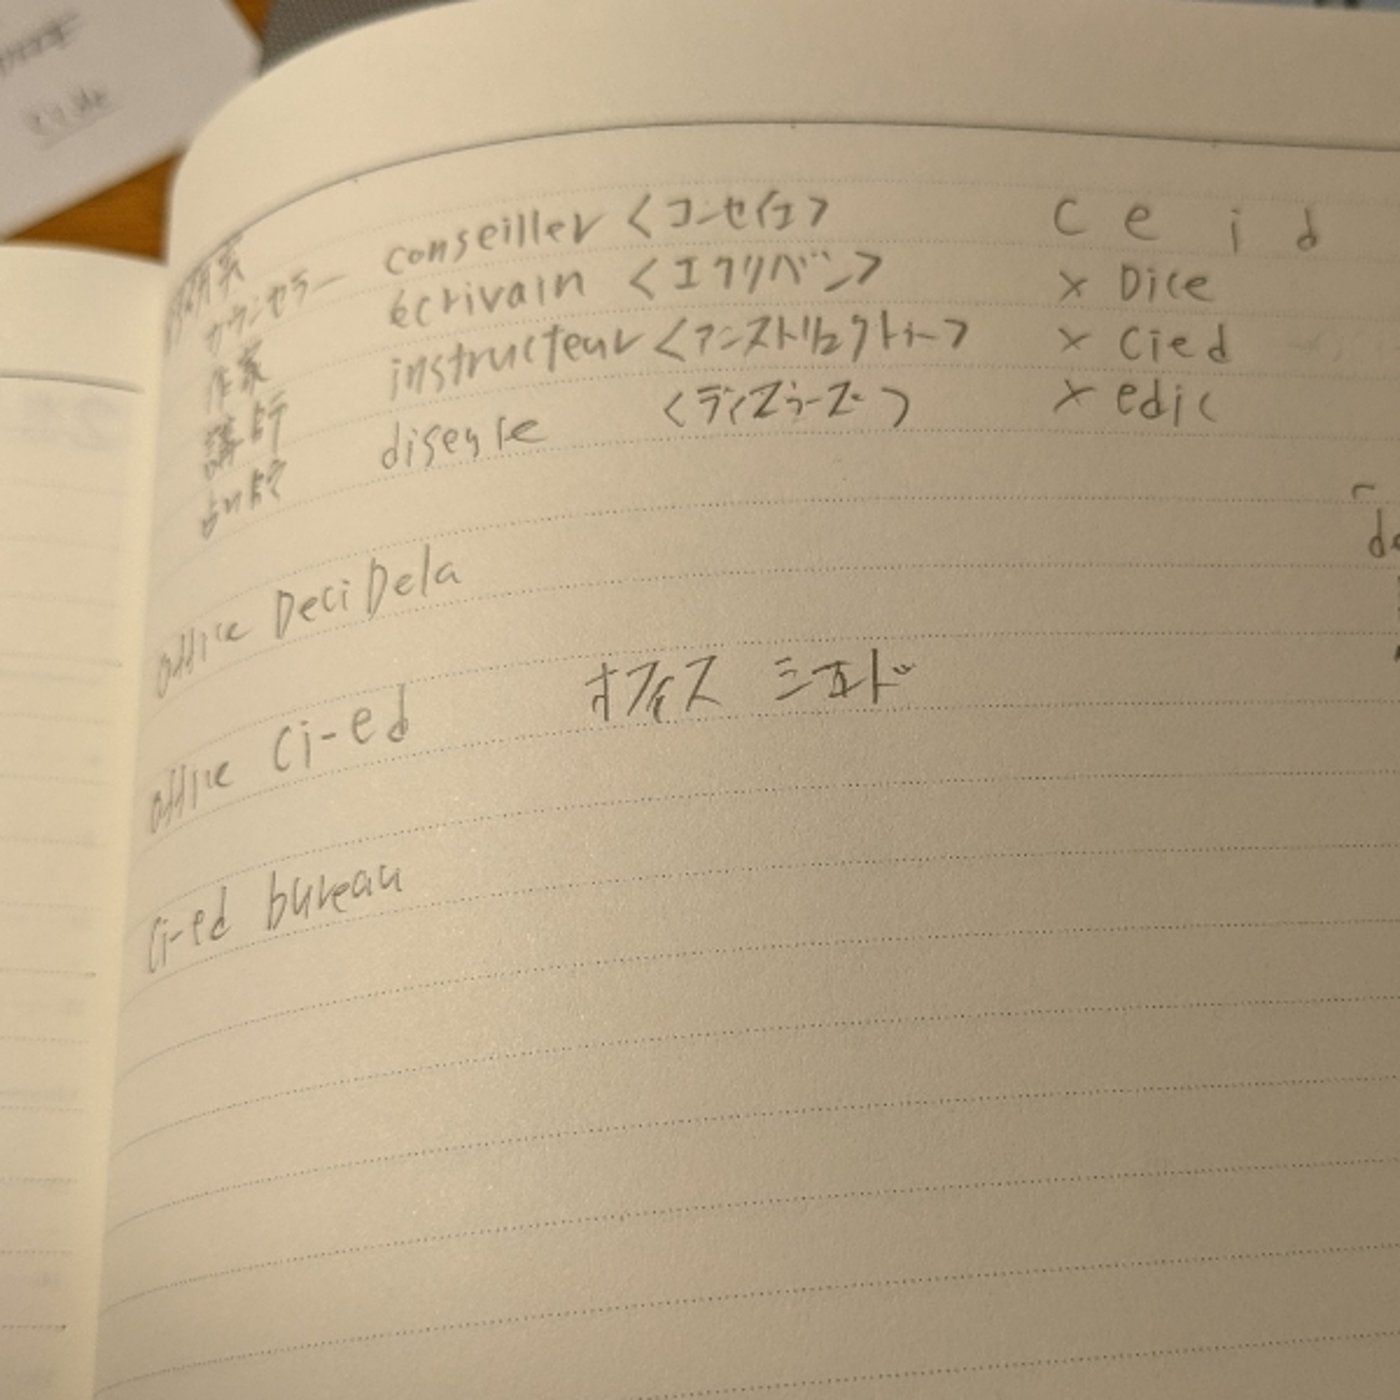 カウンセラー conseiller <コーセイエ> C e i d
作家 écrivain <エクリバン> × Dice
講師 instructeur <アンストリュクトゥール> × Cied
占い師 diseuse <ディズゥーズ> × edic
office DeciDela
office Ci-ed オフィス シエド
Ci-ed bureau